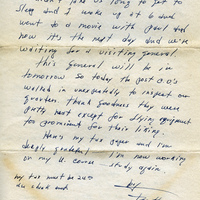 didn't take us long to get to
sleep and I woke up at 6 and
went to a movie with Paul and
now it's the next day and we're
waiting for a visiting general.
This general will be in
tomorrow so today the post C.O.'s
walked in unexpectedly to inspect our
quarters. Thank goodness they were
patly neat except for flying equipment
too prominent for their liking.
Here's my tax paper and now
deeply grateful I'm now working
on my U. course study again.
my tax must be
his check and